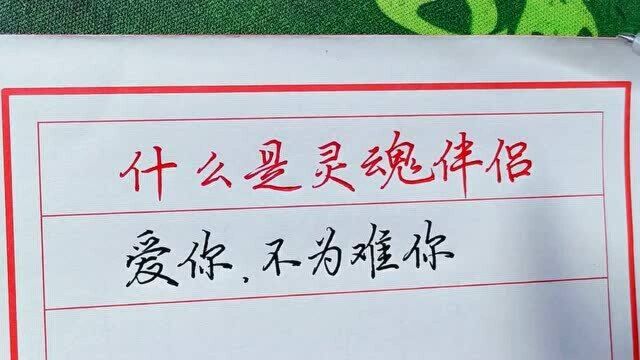 什么是灵魂伴侣
爱你,不为难你